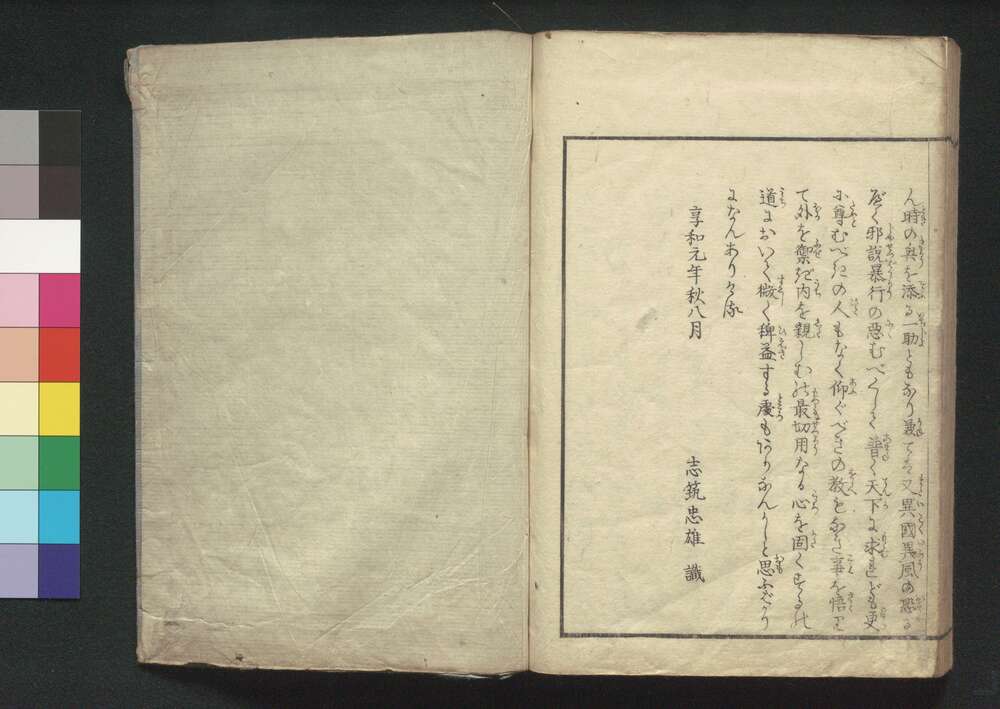 ん時の興を添る一助ともなり兼ては又異國異風の恐る
べく邪説暴行の惡むべくして普く天下に求れども更
に尊むべきの人もなく仰ぐべきの教もなき事を悟り
て外を禦ぎ内を親しむの最切用なる心を固くするの
道において微く稗益する處もありなんかしと思ふばかり
になんありける
享和元年秋八月
志筑忠雄 識